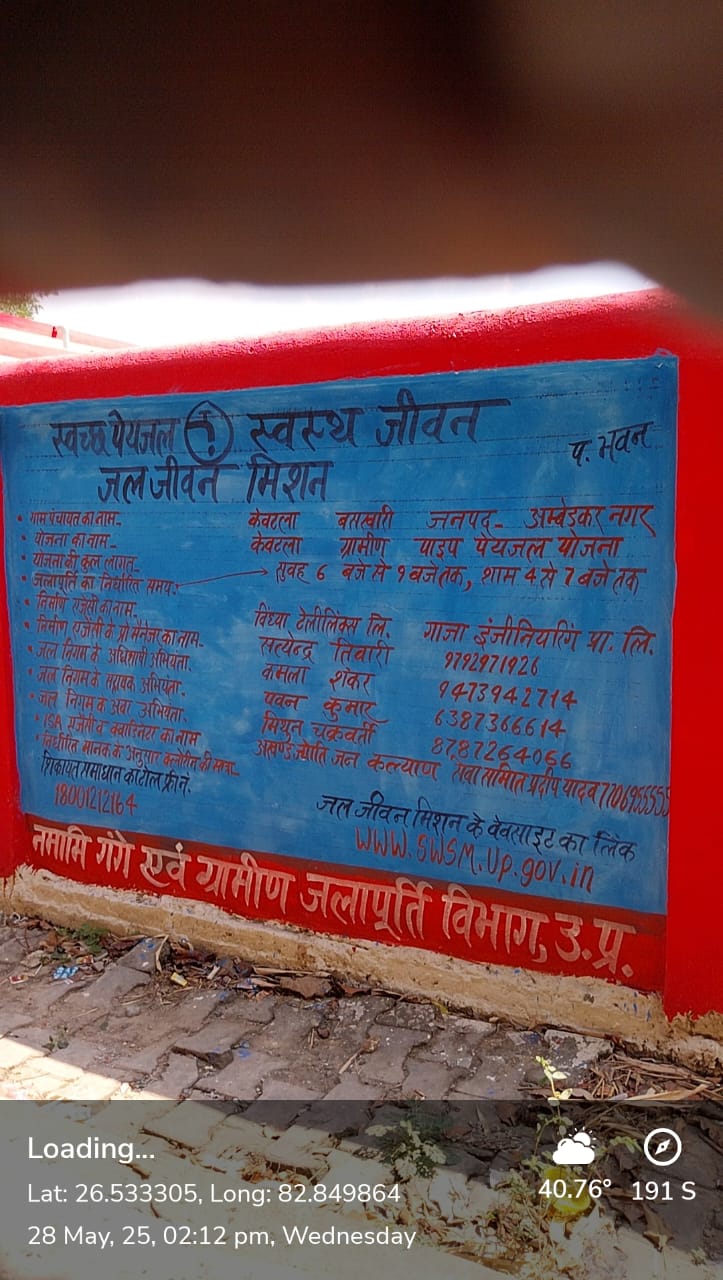 स्वच्छ पेयजल स्वस्थ जीवन
जल जीवन मिशन
पं. भवन
• ग्राम पंचायत का नाम- केवटला बसखारी जनपद- अम्बेडकर नगर
• योजना का नाम- केवटला ग्रामीण पाइप पेयजल योजना
• योजना की कुल लागत-
• जलापूर्ति का निर्धारित समय: → सुबह 6 बजे से 9 बजे तक, शाम 4 से 7 बजे तक
• निर्माण एजेंसी का नाम- विंध्या टेलीलिंक्स लि. गाजा इंजीनियरिंग प्रा. लि.
• निर्माण एजेंसी के प्रो मैनेजर का नाम- सत्येन्द्र तिवारी 9792971926
• जल निगम के अधिशाषी अभियंता- कमला शंकर 9473942714
• जल निगम के सहायक अभियंता- पवन कुमार 6387366614
• जल निगम के अवर अभियंता- मिथुन चक्रवर्ती 8787264066
• ISA एजेंसी व क्वार्डिनेटर का नाम अखण्ड ज्योति जन कल्याण सेवा समिति प्रदीप यादव
• निर्धारित मानक के अनुसार क्लोरीन की मात्रा-
शिकायत समाधान का टोल फ्री नं.
18001212164
जल जीवन मिशन के वेवसाइट का लिंक
WWW.SWSM.Up.gov.in
नमामि गंगे एवं ग्रामीण जलापूर्ति विभाग, उ.प्र.
Loading...
Lat: 26.533305, Long: 82.849864
28 May, 25, 02:12 pm, Wednesday
40.76° 191 S